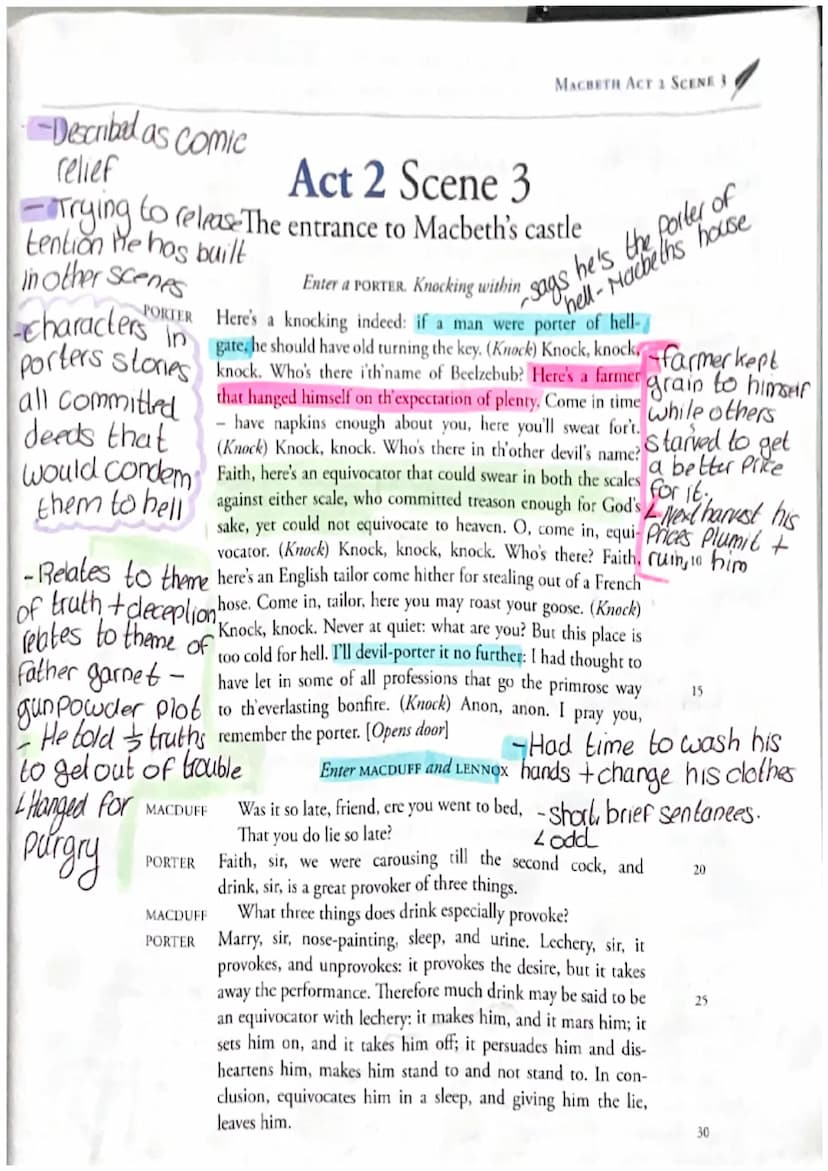 MACBETH ACT 2 SCENE 3
-Described as comic
relief
- Trying to release
tention he has built
in other scenes
Act 2 Scene 3
The entrance to Macbeth's castle
- says he's the porter of
hell - Macbeths house
Enter a PORTER. Knocking within
-characters in
porters stories
all committed
deeds that
would condem
them to hell
PORTER Here's a knocking indeed: if a man were porter of hell-
gate, he should have old turning the key. (Knock) Knock, knock,
knock. Who's there i'th'name of Beelzebub? Here's a farmer
that hanged himself on th'expectation of plenty. Come in time
– have napkins enough about you, here you'll sweat for't.
(Knock) Knock, knock. Who's there in th'other devil's name?
Faith, here's an equivocator that could swear in both the scales
against either scale, who committed treason enough for God's
sake, yet could not equivocate to heaven. O, come in, equi-
vocator. (Knock) Knock, knock, knock. Who's there? Faith,
here's an English tailor come hither for stealing out of a French
hose. Come in, tailor, here you may roast your goose. (Knock)
Knock, knock. Never at quiet: what are you? But this place is
too cold for hell. I'll devil-porter it no further: I had thought to
have let in some of all professions that go the primrose way 15
to th'everlasting bonfire. (Knock) Anon, anon. I pray you,
remember the porter. [Opens door]
-farmer kept
grain to himself
while others
starved to get
a better price
for it.
Next harvest his
Prices Plumit +
ruin to him
- Relates to theme
of truth + deception
relates to theme of
father garnet -
gunpowder plot
- He told ½ truths
to get out of trouble
Hanged for
purgry
Enter MACDUFF and LENNOX
-Had time to wash his
hands + change his clothes
MACDUFF Was it so late, friend, ere you went to bed,
That you do lie so late?
- short, brief sentances.
odd
PORTER Faith, sir, we were carousing till the second cock, and 20
drink, sir, is a great provoker of three things.
MACDUFF What three things does drink especially provoke?
PORTER Marry, sir, nose-painting, sleep, and urine. Lechery, sir, it
provokes, and unprovokes: it provokes the desire, but it takes
away the performance. Therefore much drink may be said to be 25
an equivocator with lechery: it makes him, and it mars him; it
sets him on, and it takes him off; it persuades him and dis-
heartens him, makes him stand to and not stand to. In con-
clusion, equivocates him in a sleep, and giving him the lie,
leaves him. 30